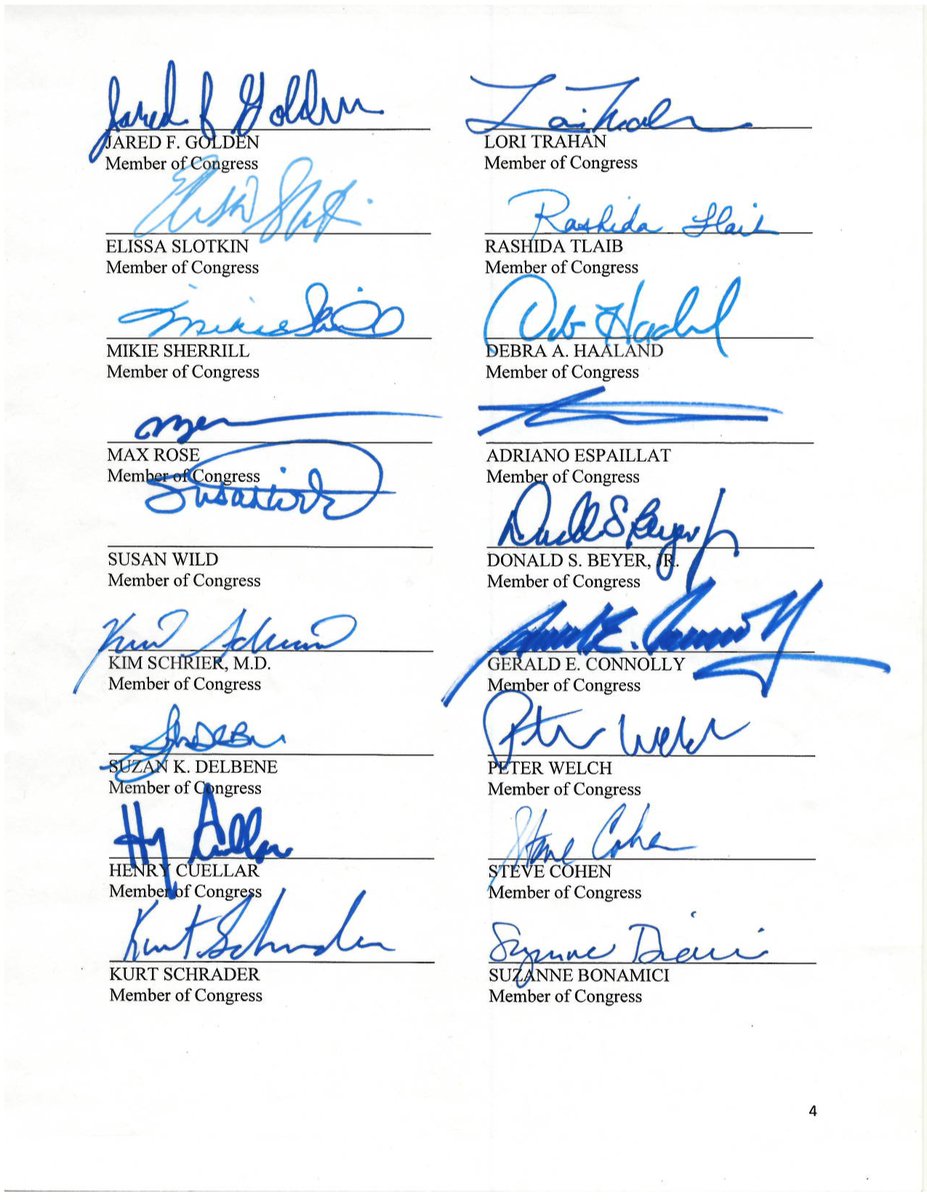 Jared F Golden
JARED F. GOLDEN
Member of Congress
Lori Trahan
LORI TRAHAN
Member of Congress
Elissa Slotkin
ELISSA SLOTKIN
Member of Congress
Rashida Tlaib
RASHIDA TLAIB
Member of Congress
Mikie Sherrill
MIKIE SHERRILL
Member of Congress
Deb Haaland
DEBRA A. HAALAND
Member of Congress
MAX ROSE
Member of Congress
ADRIANO ESPAILLAT
Member of Congress
Susan Wild
SUSAN WILD
Member of Congress
Donald S Beyer Jr
DONALD S. BEYER, JR.
Member of Congress
Kim Schrier
KIM SCHRIER, M.D.
Member of Congress
Gerald E. Connolly
GERALD E. CONNOLLY
Member of Congress
SUZAN K. DELBENE
Member of Congress
Peter Welch
PETER WELCH
Member of Congress
Henry Cuellar
HENRY CUELLAR
Member of Congress
Steve Cohen
STEVE COHEN
Member of Congress
Kurt Schrader
KURT SCHRADER
Member of Congress
Suzanne Bonamici
SUZANNE BONAMICI
Member of Congress
4